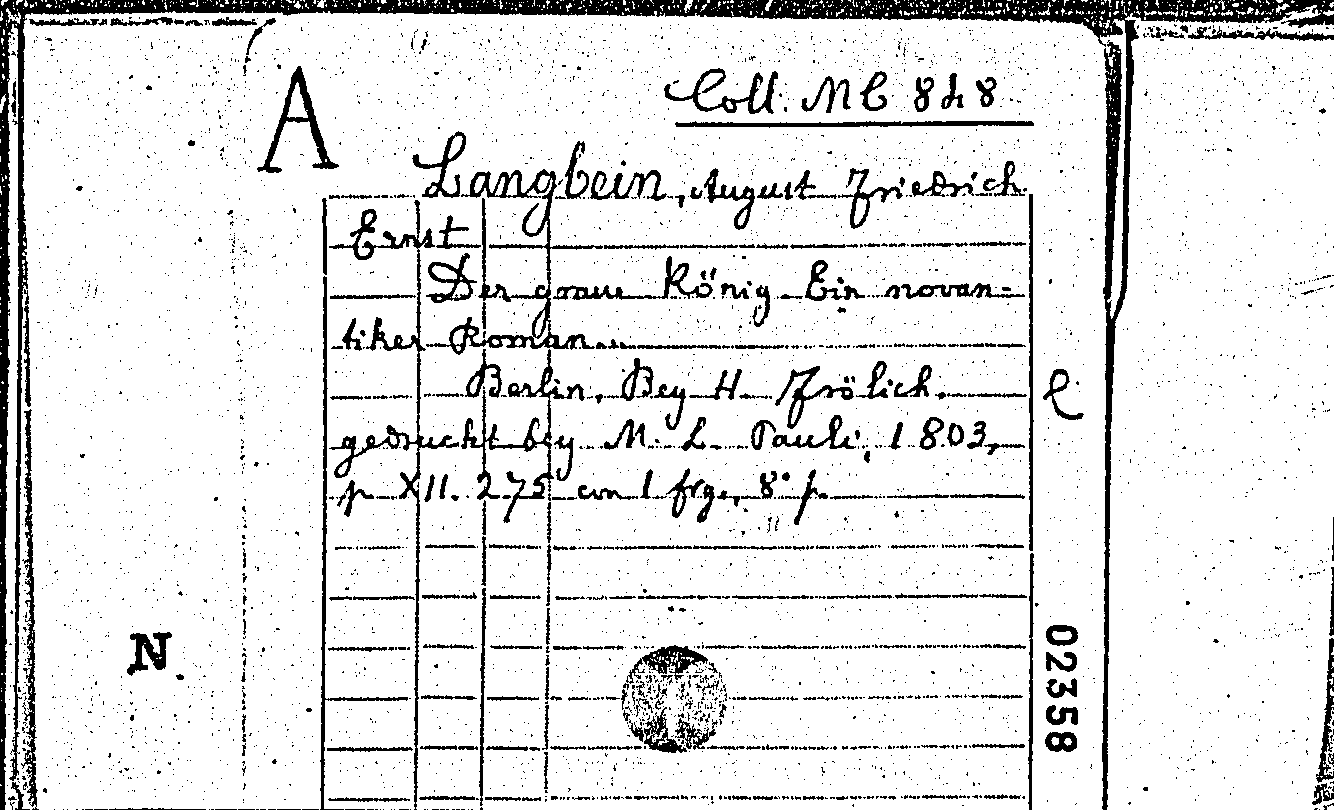 A
Coll. MC 848
Langbein, August Friedrich
Ernst
Der graue König. Ein novan-
tiker Roman...
Berlin, Bey H. Frölich.
gedruckt bey M. L. Pauli, 1803,
p XII. 275 con 1 frg., 8° p.
N
02358